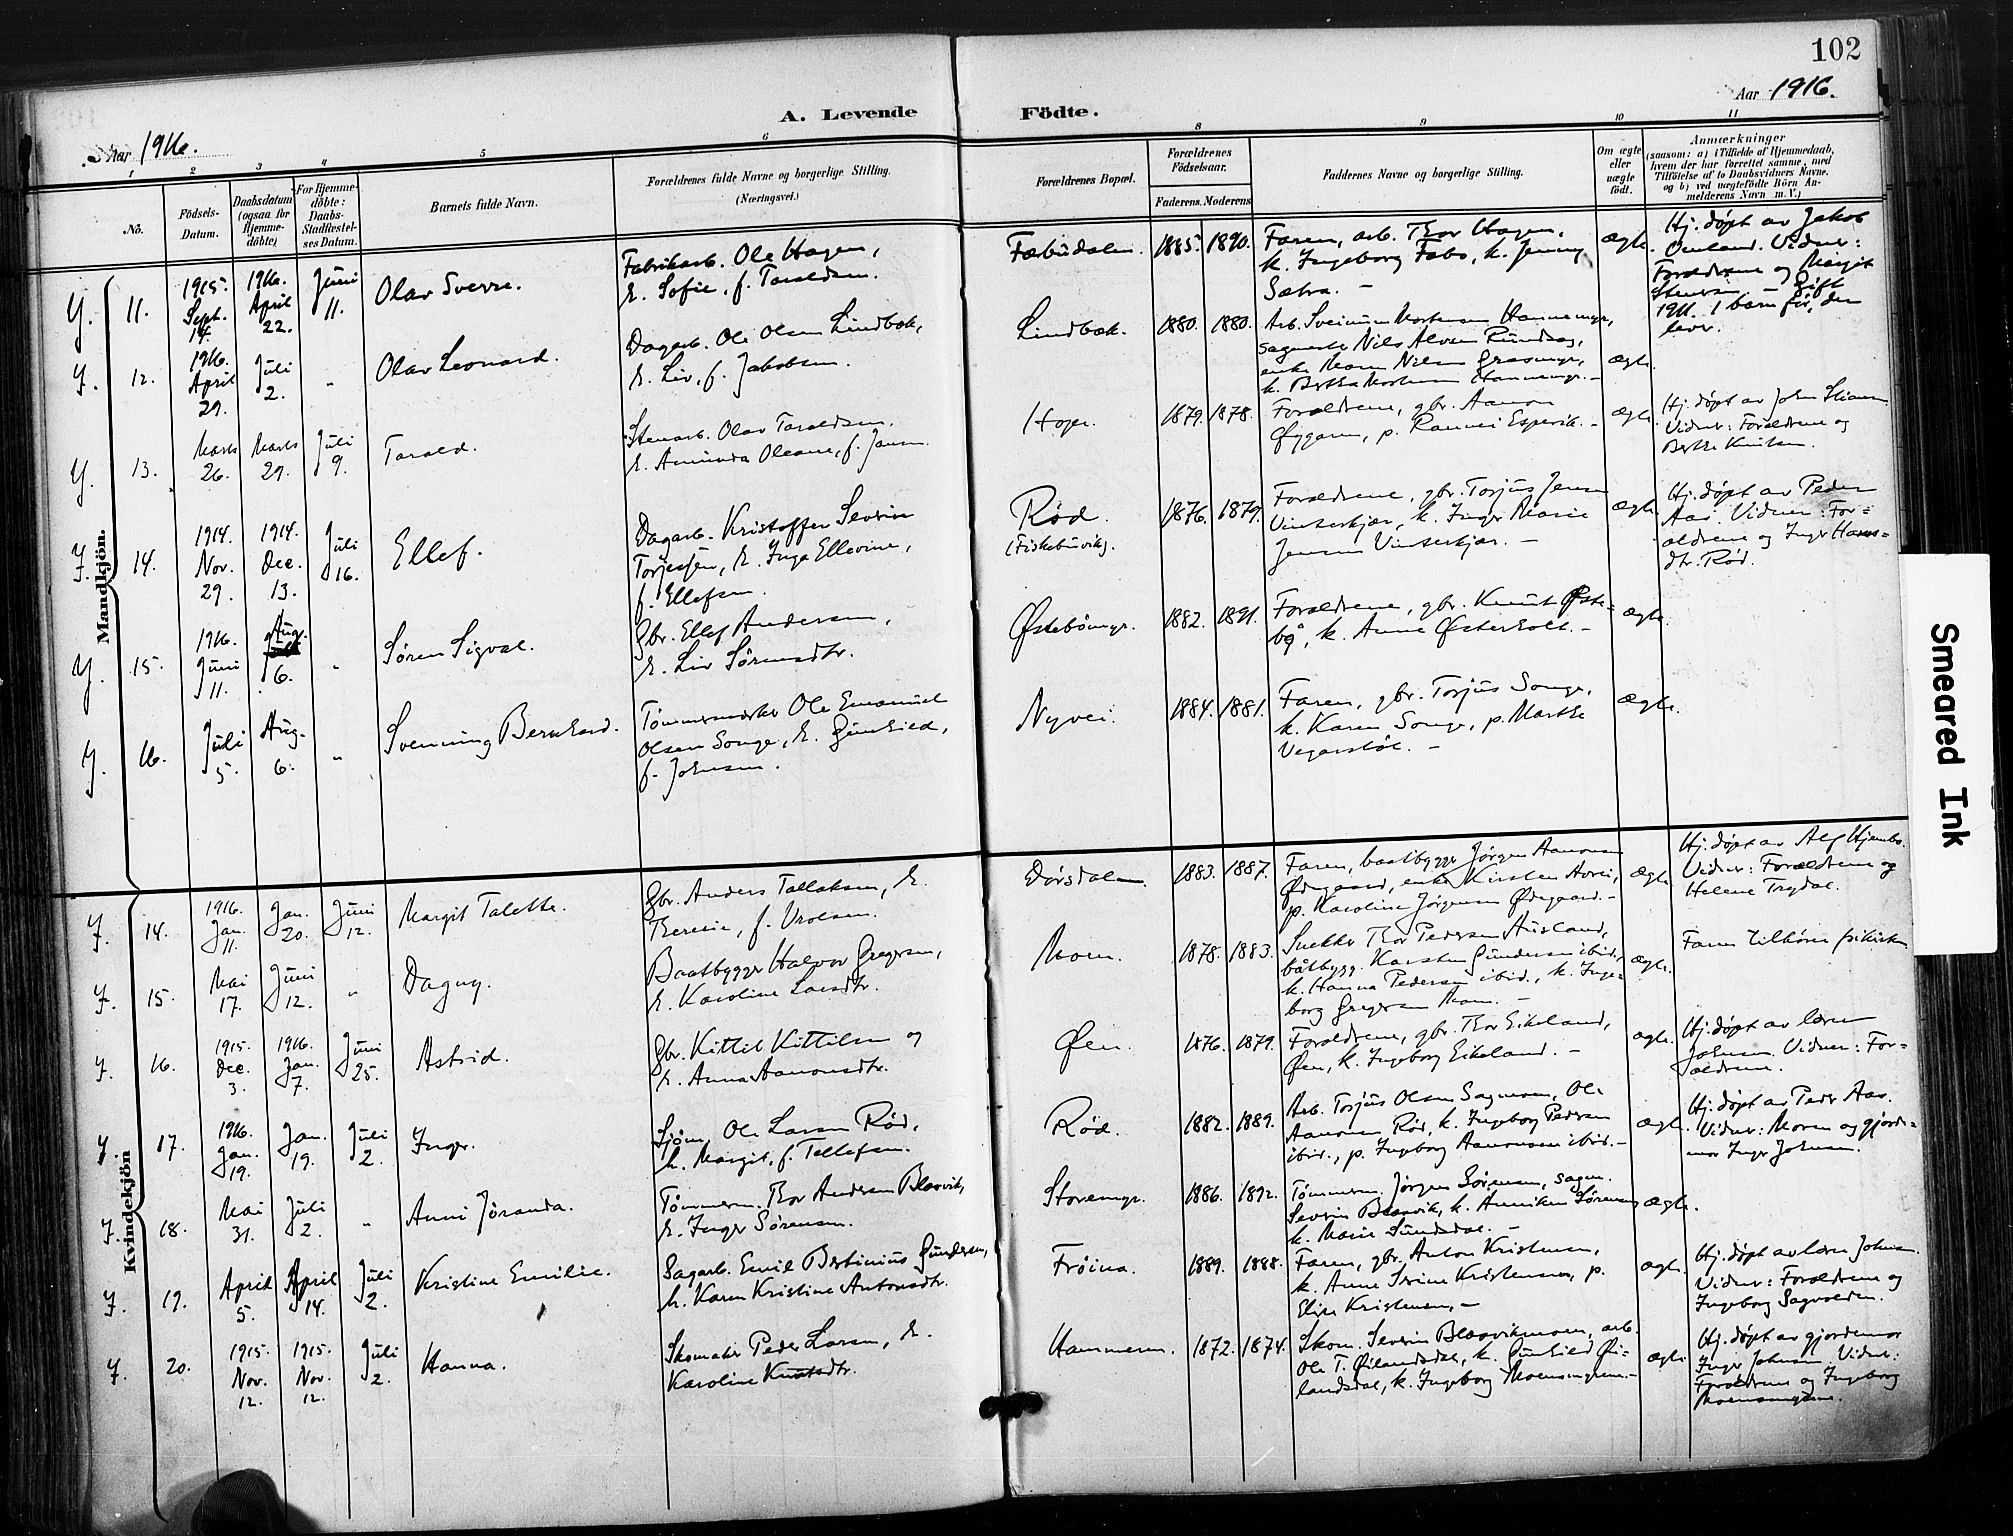 102
Aar 1916.
A. Levende
Födte.
Aar 1916.
1 2 3 4 5 6 8 9 10 11
No.
Födsels-
Datum.
Daabsdatum
(ogsaa for
Hjemme-
döbte)
For Hjemme-
döbte:
Daabs-
Stadfæstel-
ses Datum.
Barnets fulde Navn.
Forældrenes fulde Navne og borgerlige Stilling.
(Næringsvei.)
Forældrenes Bopæl.
Forældrenes
Födselsaar.
Faderens. Moderens
Faddernes Navne og borgerlige Stilling.
Om ægte
eller
uægte
födt.
Anmærkninger
(saasom: a) i Tilfælde af Hjemmedaab,
hvem der har forrettet samme, med
Tilföielse af to Daabsvidners Navne.
og b) ved uægtefödte Börn An-
melderens Navn m. V.)
Mandkjön.
11.
1915.
Sept.
14.
1916.
April
22.
Juni
11.
Olav Sverre.
Fabrikarb. Ole Hagen,
k. Sofie, f. Taraldsen.
1885. 1890.
Faren, arb. Thor Hagen,
k. Ingeborg Fabo, k. Jenny
Sætra. –
ægte.
Hj. døpt av Jakob
Omland. Vidner:
Forældrene og Margit
Stensen – Gift
1911. 1 barn før, den
lever.
12.
1916.
April
29.
Juli
2.
"
Olav Leonard.
Dagarb. Ole Olsen Lindbæk,
k. Liv, f. Jakobsen.
Lindbæk.
1880. 1880.
ægte.
13.
Marts
26.
Marts
29.
Juli
9.
Tarald.
Stenarb. Olav Taraldsen,
k. Aminda Oleane, f. Jansen.
1879. 1878.
Forældrene, gbr. Aanon
Øygarn, p. Rannei Espevik. –
ægte.
Hj. døpt av John
Vidner: Forældrene og
Berthe Knutsen.
14.
1914.
Nov.
29.
1914.
Dec.
13.
Juli
16.
Ellef.
Dagarb. Kristoffer Severin
Torjesen, k. Inga Ellevine,
f. Ellefsen.
Rød.
(Fiskebuvik).
1876. 1879.
Forældrene, gbr. Torjus Jensen
Vinterkjær, k. Inger Marie
Jensen Vinterkjær. –
ægte.
Hj. døpt av Peder
Aas. Vidner: For=
ældrene og Inger Hans=
dtr. Rød.
15.
1916.
Juni
11.
Aug.
6.
"
Søren Sigval.
Gbr. Ellef Andersen,
k. Liv Sørensdtr.
Østebømyr.
1882. 1891.
Forældrene, gbr. Knut Øste=
bø, k. Anne Østerholt. –
ægte.
16.
Juli
5.
Aug.
6.
"
Svenning Bernhard.
Tømmermester Ole Emanuel
Olsen Songe, k. Gunhild,
f. Johnsen.
Nyvei.
1884. 1881.
Faren, gbr. Torjus Songe,
k. Karen Songe, p. Marthe
Vegarstøl. –
ægte.
Kvindekjön
14.
1916.
Jan.
11.
Jan.
20.
Juni
12.
Margit Talette.
Gbr. Anders Tallaksen, k.
Therese, f. Vrolsen.
Dørsdalen.
1883. 1887.
Faren, baatbygger Jørgen Aanonsen
Ødegaard, enke Kirsten
p. Karoline Jørgensen Ødegaard. –
ægte.
Hj. døpt av Alf
Vidner: Forældrene og
Helene Trydal.
15.
Mai
17.
Juni
12.
"
Dagny.
Baatbygger Halvor Gregersen,
k. Karoline Larsdtr.
Moen.
1878. 1883.
Snekker Thor Pedersen
båtbygg. Karsten Gundersen ibid.,
k. Hanna Pedersen ibid., k. Inge=
borg Gregersen Moen. –
ægte.
Faren tilhører frikirken
16.
1915.
Dec.
3.
1916.
Jan.
7.
Juni
25.
Astrid.
Gbr. Kittil Kittilsen og
k. Anna Aanonsdtr.
Øen.
1876. 1879.
Forældrene, gbr. Thor Eikeland,
Øen, k. Ingeborg Eikeland. –
ægte.
Hj. døpt av lærer
Johnsen. Vidner: For=
ældrene.
17.
1916.
Jan.
19.
Jan.
19.
Juli
2.
Inger.
Sjøm. Ole Larsen Rød,
h. Margit, f. Tellefsen.
Rød.
1882. 1889.
Arb. Torjus Olsen Sagmoen, Ole
Aanonsen Rød, k. Ingeborg Pedersen
ibid., p. Ingeborg Aanonsen ibid. –
ægte.
Hj. døpt av Peder Aas.
Vidner: Moren og gjorde=
mor Inger Johnsen.
18.
Mai
31.
Juli
2.
"
Anni Jøranda.
Tømmerm. Thor Andersen Blaavik,
k. Inger Sørensen.
Storemyr.
1886. 1892.
Tømmerm. Jørgen Sørensen, sagm.
Severin Blaavik, k. Anniken Sørensen,
k. Marie Sundsdal. –
ægte.
19.
April
5.
April
14.
Juli
2.
Kristine Emilie.
Sagarb. Emil Bertinius Gundersen,
h. Karen Kristine Antonsdtr.
Frøina.
1889. 1888.
Faren, gbr. Anton Kristensen,
k. Anne Serine Kristensen, p.
Elise Kristensen. –
ægte.
Hj. døpt av lærer Johnsen.
Vidner: Forældrene og
Ingeborg Sagvolden.
20.
1915.
Nov.
12.
1915.
Nov.
12.
Juli
2.
Hanna.
Skomaker Peder Larsen, k.
Karoline Knutsdtr.
Hammeren.
1872. 1874.
Skom. Severin Blaavikmoen, arb.
Ole T. Øilandsdal, k. Gunhild Øi=
landsdal, k. Ingeborg Moensmyrene. –
ægte.
Hj. døpt av gjordemor
Inger Johnsen. Vidner:
Forældrene og Ingeborg
Moensmyrene.
Smeared Ink